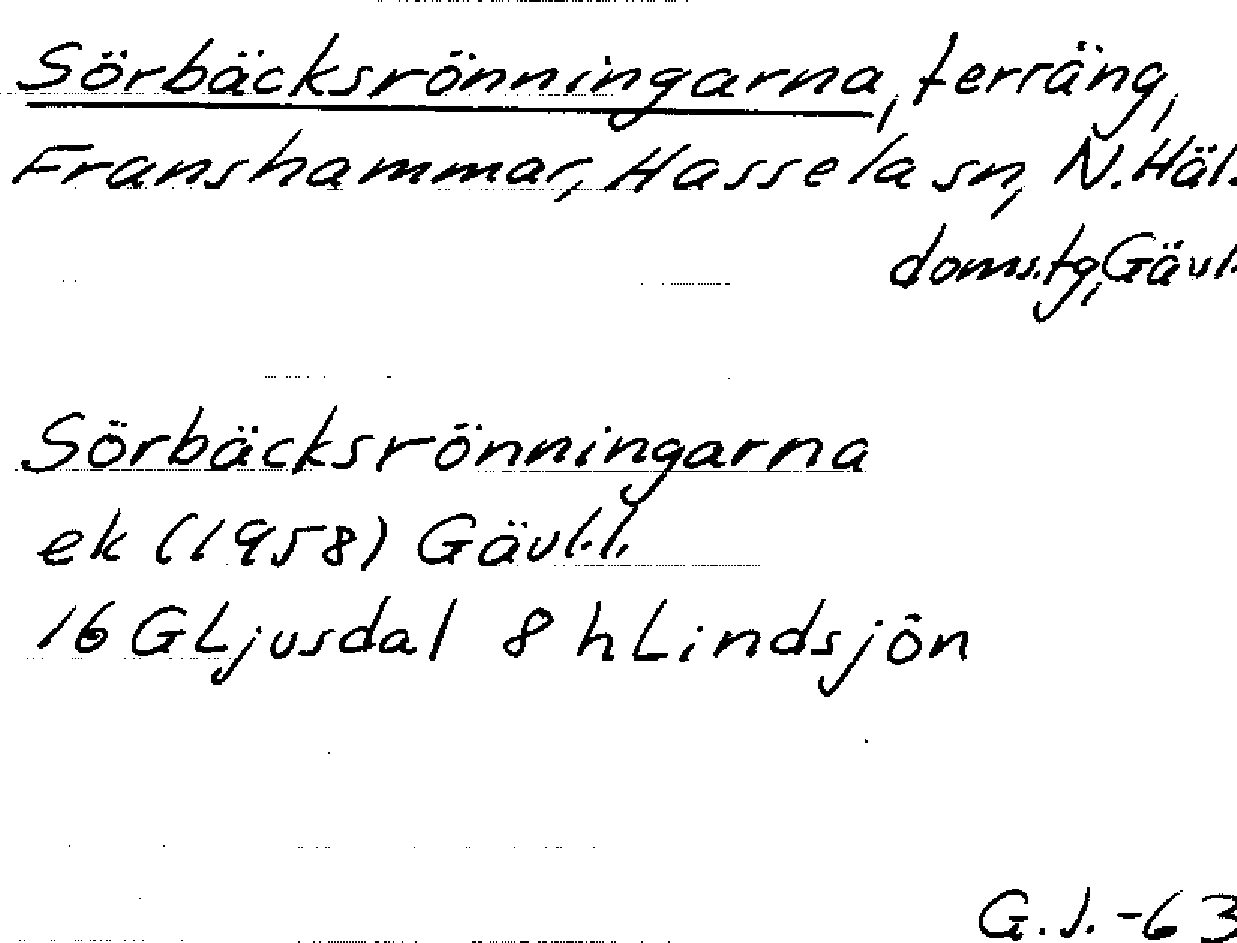 Sörbäcksrönningarna, terräng,
Franshammar, Hassela sn, N. Häl.
doms.tg, Gävl.
Sörbäcksrönningarna
ek (1958) Gävl.l.
16 G Ljusdal 8 h Lindsjön
G.J. -63